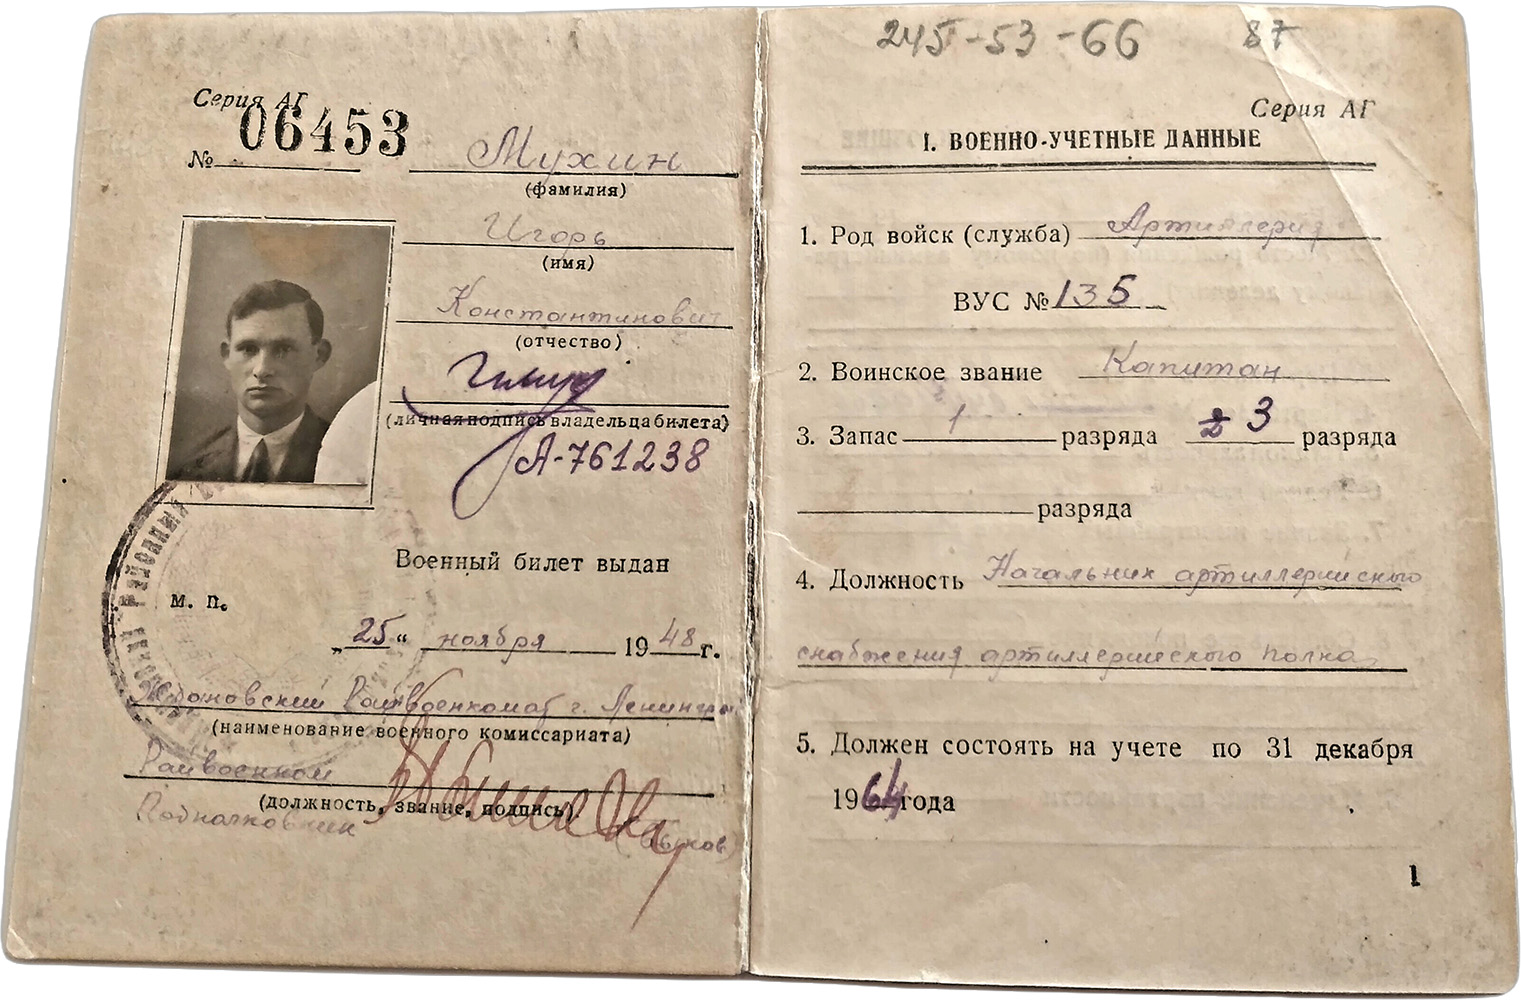 Серия АГ
№ 06453
Мухин
(фамилия)
Игорь
(имя)
Константинович
(отчество)
(личная подпись владельца билета)
А-761238
Военный билет выдан
м. п.
„25“ ноября 1948 г.
Ждановский Райвоенкомат г. Ленингра
(наименование военного комиссариата)
Райвоенком
(должность, звание, подпись)
Подполковник (Быков)
РАЙОННЫЙ
245-53-66 87
Серия АГ
I. ВОЕННО-УЧЕТНЫЕ ДАННЫЕ
1. Род войск (служба) Артиллерия
ВУС № 135
2. Воинское звание Капитан
3. Запас 1 разряда 2 3 разряда
разряда
4. Должность Начальник артиллерийского
снабжения артиллерийского полка
5. Должен состоять на учете по 31 декабря
1964 года
1